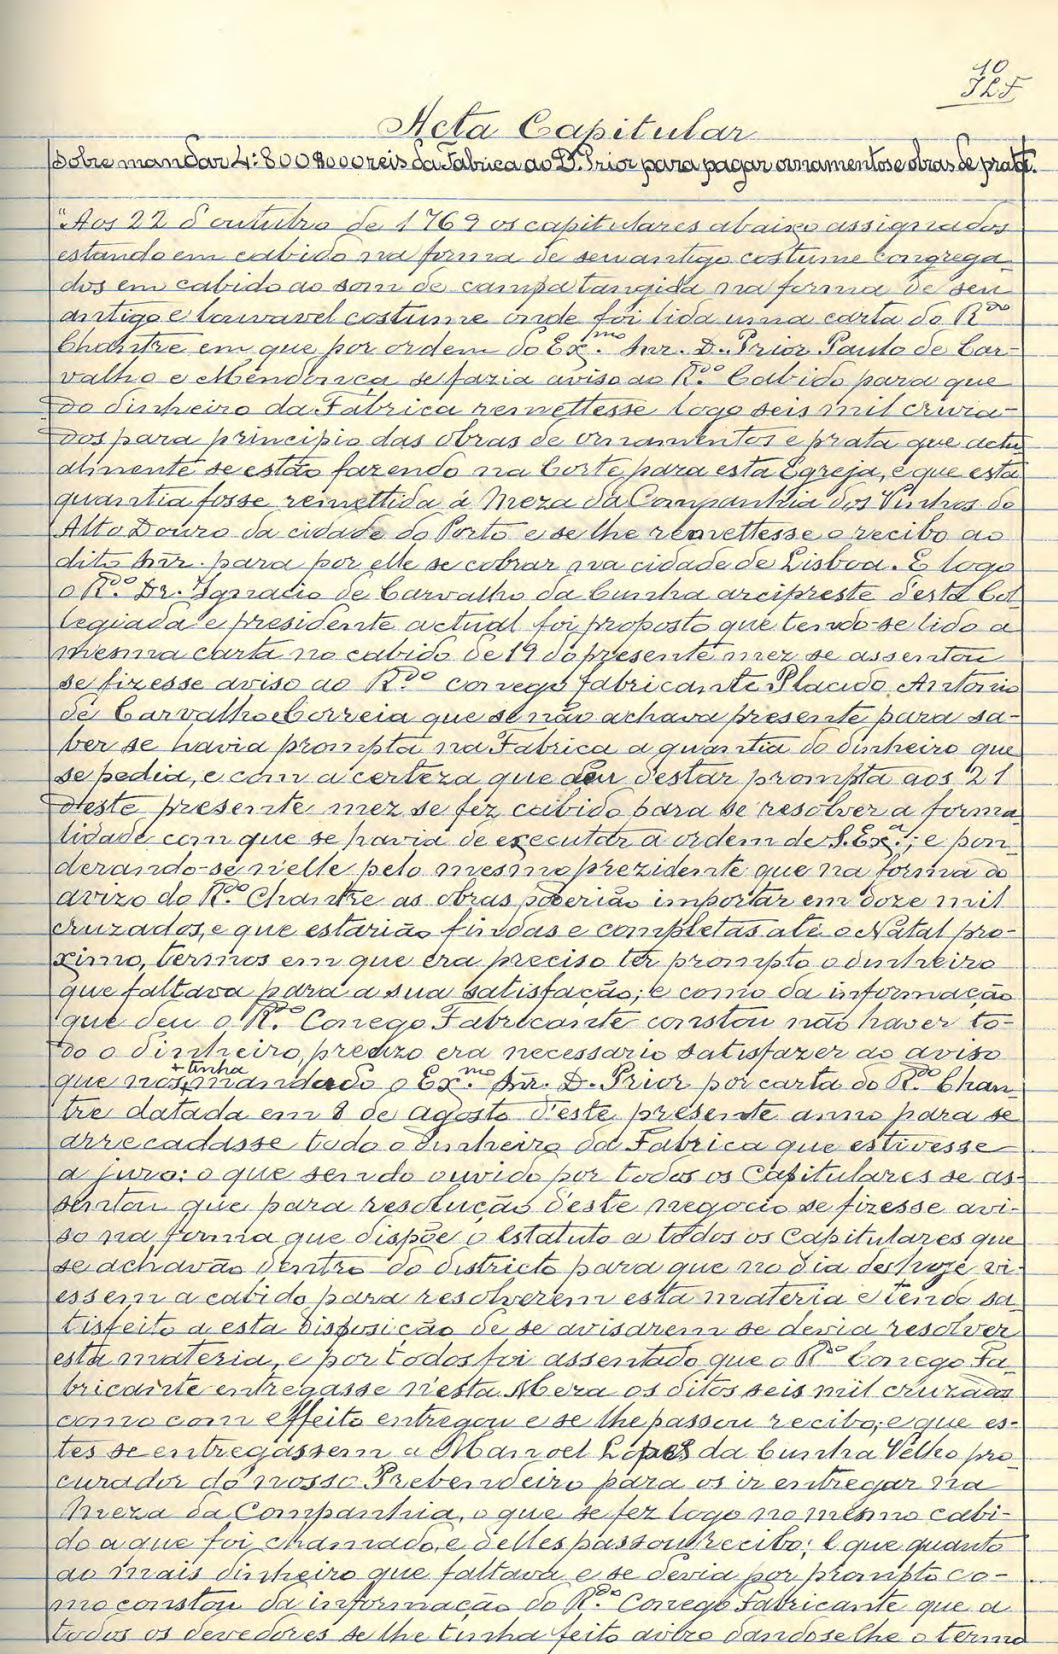 10
JLF
Acta Capitular
Sobre mandar 4:800$000 reis da Fabrica ao D. Prior para pagar ornamentos e obras de prata.
"Aos 22 d'outubro de 1769 os capitulares abaixo assignados
estando em cabido na forma de seu antigo costume congrega-
dos em cabido ao som de campa tangida na forma de seu
antigo e louvavel costume onde foi lida uma carta do Rdo
Chantre em que por ordem do Exmo. Snr. D. Prior Paulo de Car-
valho e Mendonça se fazia aviso ao Rdo. Cabido para que
do dinheiro da Fabrica remettesse logo seis mil cruza-
dos para principio das obras de ornamentos e prata que actu-
almente se estão fazendo na Corte para esta Egreja, e que esta
quantia fosse remettida á Meza da Companhia dos Vinhos do
Alto Douro da cidade do Porto e se lhe remettesse o recibo ao
dito Snr. para por elle se cobrar na cidade de Lisboa. E logo
o Rdo. Dr. Ignacio de Carvalho da Cunha arcipreste d'esta Col-
legiada e presidente actual foi proposto que tendo-se lido a
mesma carta no cabido de 19 do presente mez se assentou
se fizesse aviso ao Rdo conego fabricante Placido Antonio
de Carvalho e Correia que se não achava presente para sa-
ber se havia prompta na Fabrica a quantia do dinheiro que
se pedia, e com a certeza que deu d'estar prompta aos 21
d'este presente mez se fez cabido para se resolver a forma-
lidade com que se havia de executar a ordem de S. Exa.; e pon-
derando-se n'elle pelo mesmo prezidente que na forma do
avizo do Rdo. Chantre as obras poderião importar em doze mil
cruzados, e que estarião findas e completas até o Natal pro-
ximo, termos em que era preciso ter prompto o dinheiro
que faltava para a sua satisfação; e como da informação
que deu o Rdo. Conego Fabricante constou não haver to-
do o dinheiro, precizo era necessario satisfazer ao aviso
que nos + tinha mandado o Exmo. Snr. D. Prior por carta do Rdo. Chan-
tre datada em 8 de agosto d'este presente anno para se
arrecadasse todo o dinheiro da Fabrica que estivesse
a juro: o que sendo ouvido por todos os Capitulares se as-
sentou que para resolução d'este negocio se fizesse avi-
so na forma que dispõe o Estatuto a todos os Capitulares que
se achavão dentro do districto para que no dia deshoje vi-
essem a cabido para resolverem esta materia e tendo sa-
tisfeito a esta disposição de se avisarem se devia resolver
esta materia, e por todos foi assentado que o Rdo Conego Fa-
bricante entregasse n'esta Meza os ditos seis mil cruzados
como com effeito entregou e se lhe passou recibo; e que es-
tes se entregassem a Manoel Lopes da Cunha Velho pro-
curador do nosso Prebendeiro para os ir entregar na
Meza da Companhia, o que se fez logo no mesmo cabi-
do a que foi chamado, e delles passou recibo; E que quanto
ao mais dinheiro que faltava e se devia por prompto co-
mo constou da informação do Rdo. Conego Fabricante que a
todos os devedores se lhe tinha feito avizo dandoselhe o termo